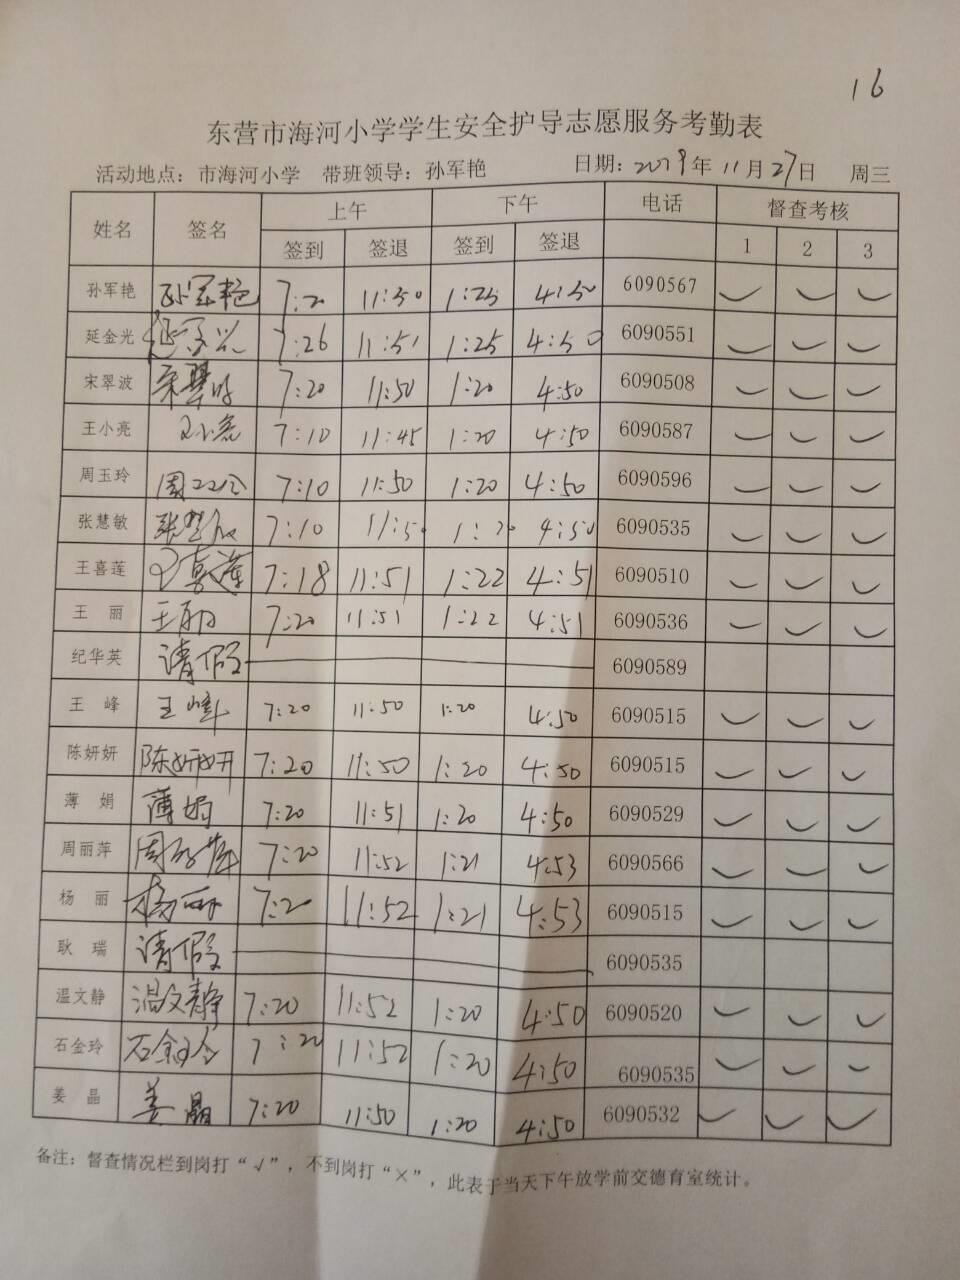 16
东营市海河小学学生安全护导志愿服务考勤表
活动地点：市海河小学 带班领导：孙军艳 日期：2019年11月27日 周三
姓名 签名 上午 下午 电话 督查考核
签到 签退 签到 签退 1 2 3
孙军艳 孙军艳 7:20 11:50 1:25 4:50 6090567 ✓ ✓ ✓
延金光 延金光 7:26 11:51 1:25 4:50 6090551 ✓ ✓ ✓
宋翠波 宋翠波 7:20 11:50 1:20 4:50 6090508 ✓ ✓ ✓
王小亮 王小亮 7:10 11:45 1:20 4:50 6090587 ✓ ✓ ✓
周玉玲 周玉玲 7:10 11:50 1:20 4:50 6090596 ✓ ✓ ✓
张慧敏 张慧敏 7:10 11:50 1:20 4:50 6090535 ✓ ✓ ✓
王喜莲 王喜莲 7:18 11:51 1:22 4:51 6090510 ✓ ✓ ✓
王 丽 王丽 7:20 11:51 1:22 4:51 6090536 ✓ ✓ ✓
纪华英 请假 6090589
王 峰 王峰 7:20 11:50 1:20 4:50 6090515 ✓ ✓ ✓
陈妍妍 陈妍妍 7:20 11:50 1:20 4:50 6090515 ✓ ✓ ✓
薄 娟 薄娟 7:20 11:51 1:20 4:50 6090529 ✓ ✓ ✓
周丽萍 周丽萍 7:20 11:52 1:21 4:53 6090566 ✓ ✓ ✓
杨 丽 杨丽 7:20 11:52 1:21 4:53 6090515 ✓ ✓ ✓
耿 瑞 请假 6090535
温文静 温文静 7:20 11:52 1:20 4:50 6090520 ✓ ✓ ✓
石金玲 石金玲 7:20 11:52 1:20 4:50 6090535 ✓ ✓ ✓
姜 晶 姜晶 7:20 11:50 1:20 4:50 6090532 ✓ ✓ ✓
备注：督查情况栏到岗打“√”，不到岗打“×”，此表于当天下午放学前交德育室统计。